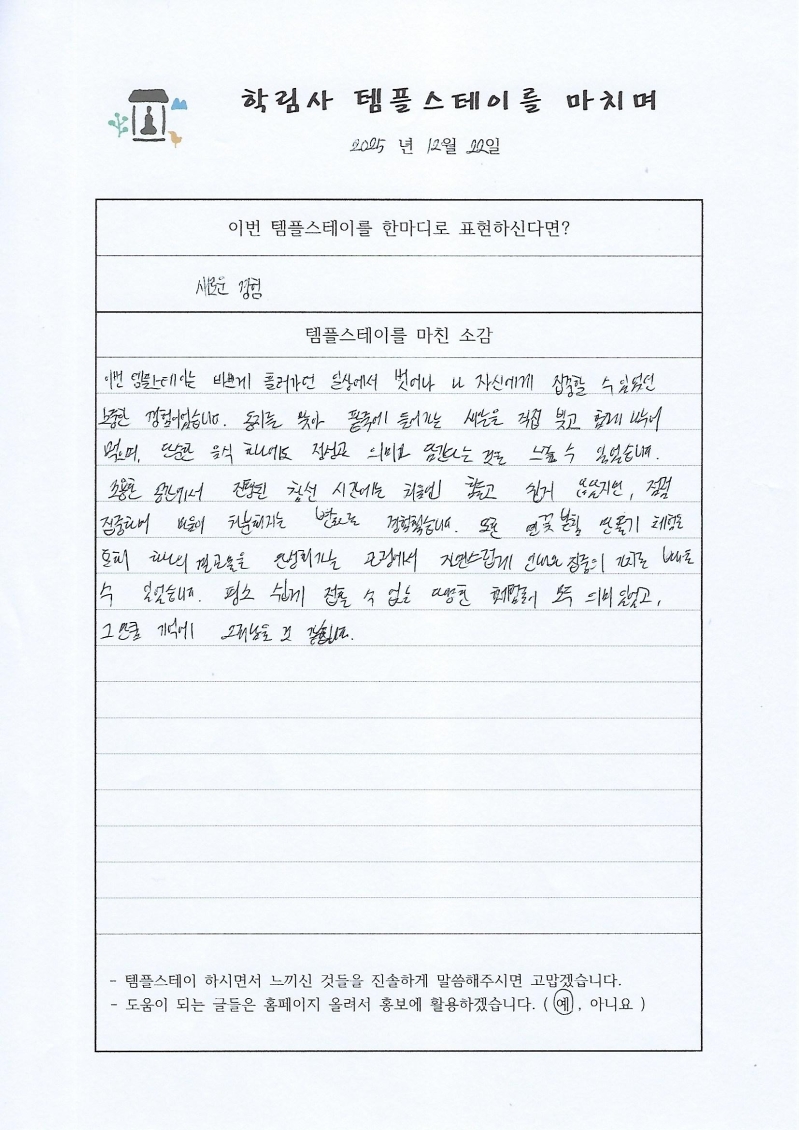 학림사 템플스테이를 마치며
2025 년 12월 22일
이번 템플스테이를 한마디로 표현하신다면?
새로운 경험
템플스테이를 마친 소감
이번 템플스테이는 바쁘게 흘러가던 일상에서 벗어나 나 자신에게 집중할 수 있었던
소중한 경험이었습니다. 동지를 맞아 팥죽에 들어가는 새알을 직접 빚고 함께 나누어
먹으며, 단순한 음식 하나에도 정성과 의미가 담긴다는 것을 느낄 수 있었습니다.
조용한 공간에서 진행된 참선 시간에는 처음엔 힘들고 쉽게 않았지만, 점점
집중하며 마음이 차분해지는 변화를 경험했습니다. 또한 연꽃 만들기 체험도
하나의 완성해가는 과정에서 자연스럽게 인내와 집중의 가치를 배울
수 있었습니다. 평소 쉽게 접할 수 없는 다양한 모두 의미 있었고,
그만큼 기억에 오래남을 것 같습니다.
- 템플스테이 하시면서 느끼신 것들을 진솔하게 말씀해주시면 고맙겠습니다.
- 도움이 되는 글들은 홈페이지 올려서 홍보에 활용하겠습니다. ( 예 , 아니요 )